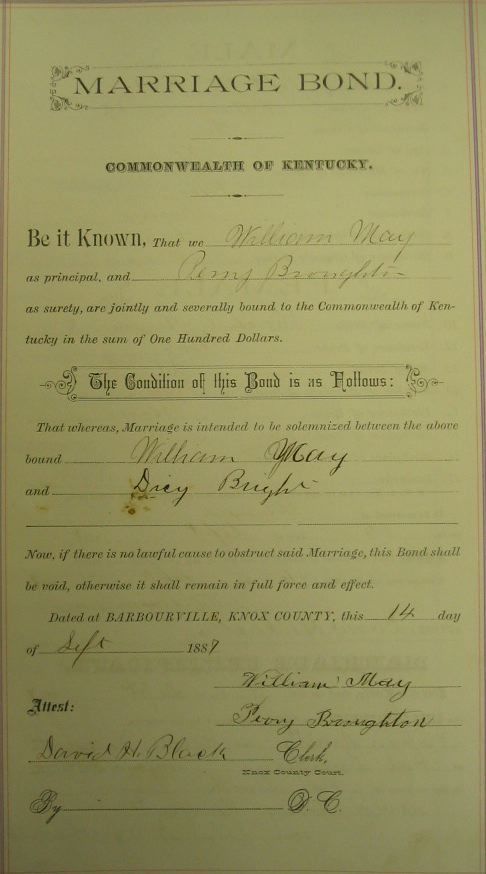 MARRIAGE BOND.
COMMONWEALTH OF KENTUCKY.
Be it Known, That we William May
as principal, and Broughton
as surety, are jointly and severally bound to the Commonwealth of Ken-
tucky in the sum of One Hundred Dollars.
The Condition of this Bond is as Follows:
That whereas, Marriage is intended to be solemnized between the above
bound William May
and Dicy Bright
Now, if there is no lawful cause to obstruct said Marriage, this Bond shall
be void, otherwise it shall remain in full force and effect.
Dated at BARBOURVILLE, KNOX COUNTY, this 14 day
of Sept 1887
William May
Attest:
Broughton
David H. Black Clerk,
Knox County Court.
By D. C.